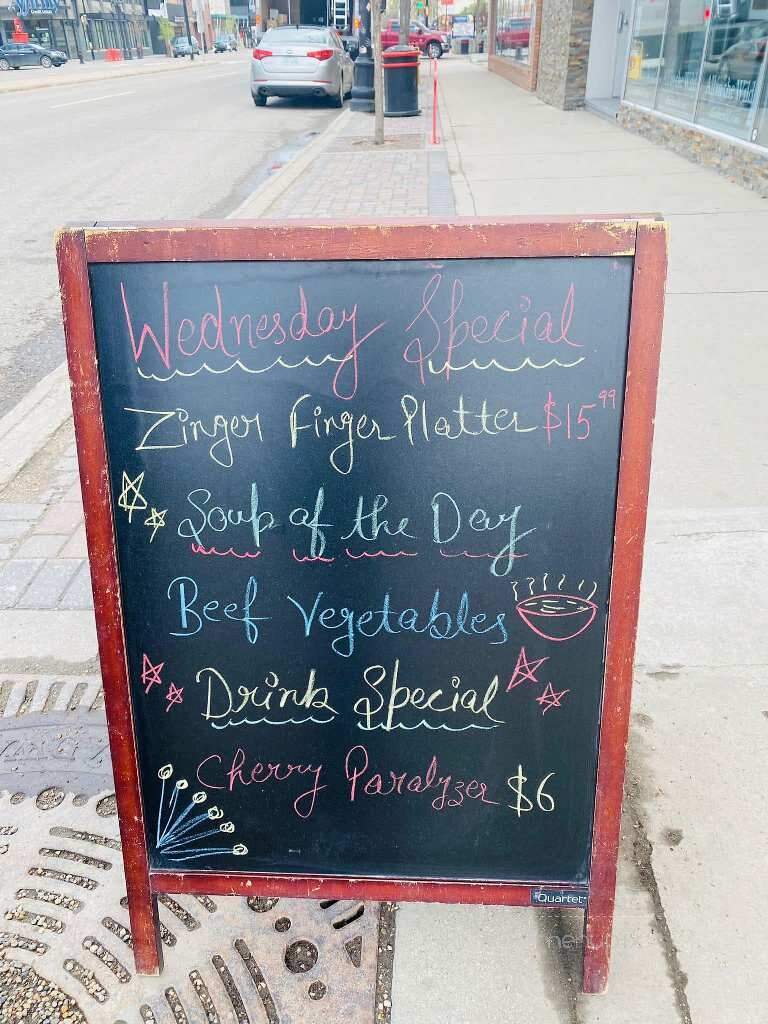 Wednesday Special
Zinger Finger Platter $15.99
Soup of the Day
Beef Vegetables
Drink Special
Cherry Paralyzer $6
Quartet